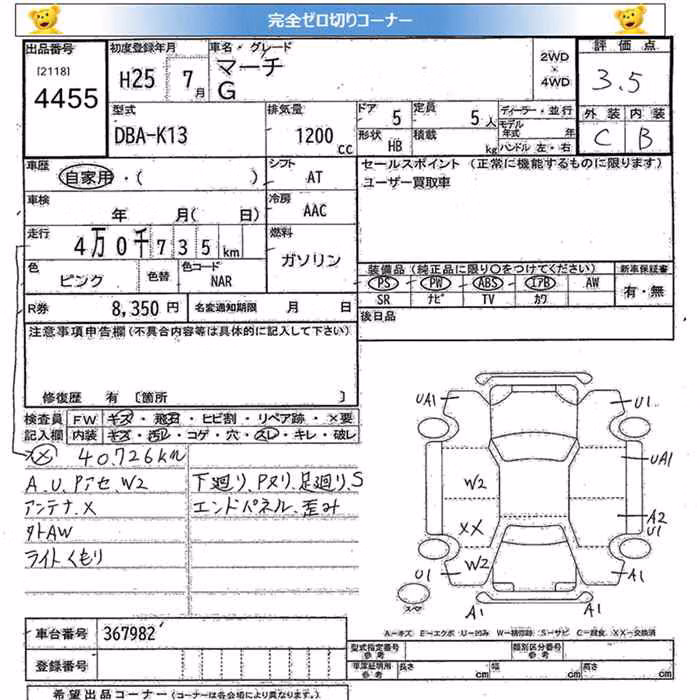 完全ゼロ切りコーナー
出品番号
[2118]
4455
初度登録年月
H25 7月
車名・グレード
マーチ
G
2WD
・
4WD
評価点
3.5
外装 内装
C B
型式
DBA-K13
排気量
1200cc
ドア 5
形状 HB
定員 5人
積載 kg
ディーラー・並行
モデル年式 年
ハンドル 左・右
車歴
自家用・( )
シフト
AT
セールスポイント (正常に機能するものに限ります)
ユーザー買取車
車検
年 月( 日)
冷房
AAC
走行
4万0千735km
燃料
ガソリン
色
ピンク
色替
色コード
NAR
装備品 (純正品に限り○をつけてください)
PS PW ABS エアB AW
SR ナビ TV カワ
新車保証書
有・無
R券 8,350円 名変通知期限 月 日
後日品
注意事項申告欄 (不具合内容等は具体的に記入して下さい)
修復歴 有 〔箇所 〕
検査員 FW キズ・飛石・ヒビ割・リペア跡・×要
記入欄 内装 キズ・汚レ・コゲ・穴・スレ・キレ・破レ
× 40,726km
A、U、Pアセ、W2
アンテナ、X
外AW
ライトくもり
下廻り、Pヌリ、足廻り、S
エンドパネル、歪み
UA1 U1
UA1
W2
A2
U1
XX
W2
U1 A1
A1 A1
スペア
A—キズ E—エクボ U—凹み W—補修跡 S—サビ C—腐食 XX—交換済
車台番号 367982
登録番号
型式指定番号 参考
類別区分番号 参考
車庫証明用 参考 長さ cm 幅 cm 高さ cm
希望出品コーナー (コーナーは各会場により異なります。)